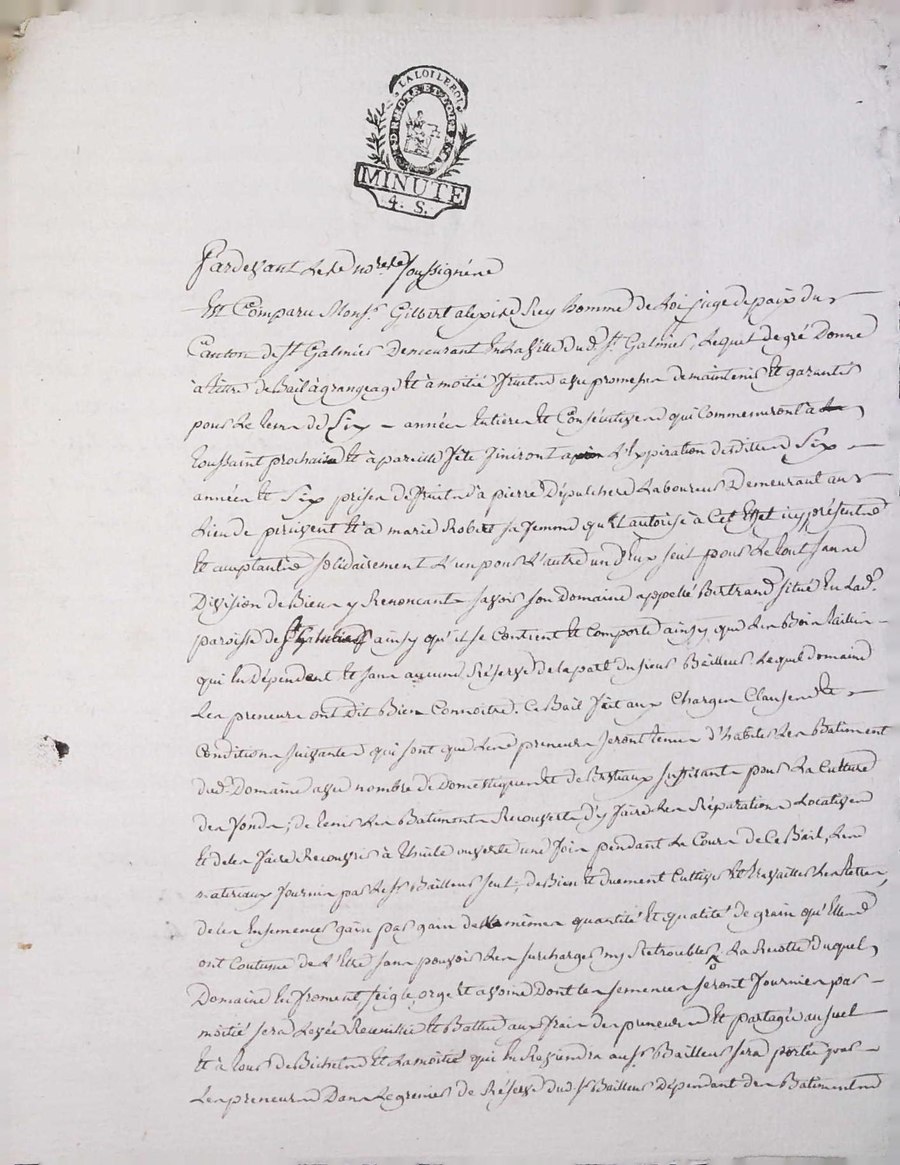 LA LOI LE ROI
DR. RHONE ET LOIRE
MINUTE
4. S.
Pardevant les nores soussignés
Est Comparu Monsr. Gilbert alexis Rey homme de Loi juge de paix du
Canton de St Galmier Demeurant En la ville dud. St. Galmier, Lequel de gré Donne
à titre de Bail à grangeage et à moitié fruits avec promesse de maintenir et garantir
pour le tems de Six années Entieres et Consécutives qui Commenceront à la
toussaint prochaine et à pareille fête finiront à l'Expiration desdittes Six
années et Six prises de fruits à pierre Dépulchere Laboureur Demeurant au
Lieu de et à marie Robert sa femme qu'il autorise à Cet Effet icy présents
et acceptants solidairement L'un pour L'autre un d'Eux seul pour Le tout sans
Division de Biens y Renonçant savoir son Domaine appellé Bertrand situé En Lad.
paroisse de St galmier ainsy qu'il se Contient et Comporte ainsy que Les Bois taillis
qui En dépendent et sans aucune Réserve de la part du sieur Bailleur Lequel domaine
Les preneurs ont dit Bien Connoitre. Ce Bail fait aux Charges Clauses et
Conditions suivantes qui sont que Les preneurs seront tenus d'habiter Les Batiments
dud. Domaine avec nombre de Domestiques et de Bestiaux suffisants pour La Culture
des fonds; de tenir Les Batiments Recouverts d'y faire Les Réparations Locatives
et de les faire Recouvrir à thuile ouverte une fois pendant Le Cours de Ce Bail, Les
materiaux fournis par Le sr. Bailleur seul; de Bien et duement Cultiver et travailler Les terres,
de les Ensemencer gain par gain de mêmes quantité et qualité de grain qu'Elles
ont Coutume de L'Etre sans pouvoir Les surcharger ny Retroubler, La Recolte duquel
Domaine En froment, seigle, orge et avoine dont les semences seront fournies par
moitié sera Levée Recueillie et Battue aux frais des preneurs et partagée au suel
et à tour de Bichet et La moitié qui En Reviendra au sr. Bailleur sera portée par
Les preneurs Dans Le grenier de Réserve dud. sr. Bailleur Dépendant des Batiments